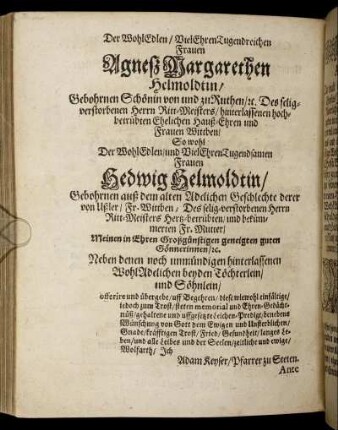 Der WohlEdlen/ VielEhrenTugendreichen
Frauen
Agneß Margarethen
Helmoldtin/
Gebohrnen Schönin von und zu Ruthen/ ꝛc. Des selig-
verstorbenen Herrn Ritt-Meisters/ hinterlassenen hoch-
betrübten Ehelichen Hauß-Ehren und
Frauen Wittben/
So wohl
Der WohlEdlen/und VielEhrenTugendsamen
Frauen
Hedwig Helmoldtin/
Gebohrnen auß dem alten Adelichen Geschlechte derer
von Ußler/ Fr. Wittben/ Des selig-verstorbenen Herrn
Ritt-Meisters Hertz-betrübten/ und beküm-
merten Fr. Mutter/
Meinen in Ehren Großgünstigen geneigten guten
Gönnerinnen/ ꝛc.
Neben denen noch unmündigen hinterlassenen
WohlAdelichen beyden Töchterlein/
und Söhnlein/
offerire und übergebe/ uff Begehren/ diese wiewohl einfältige/
jedoch zum Trost/ steten memorial und Ehren-Gedächt-
nüß/ gehaltene und uffgesetzte Leichen-Predigt/ benebens
Wünschung von Gott dem Ewigen und Unsterblichen/
Gnade/ kräfftigen Trost/ Fried/ Gesundheit/ langes Le-
ben/und alle Leibes und der Seelen/ zeitliche und ewige/
Wolfarth/ Ich
Adam Keyser/ Pfarrer zu Steten.
Ante